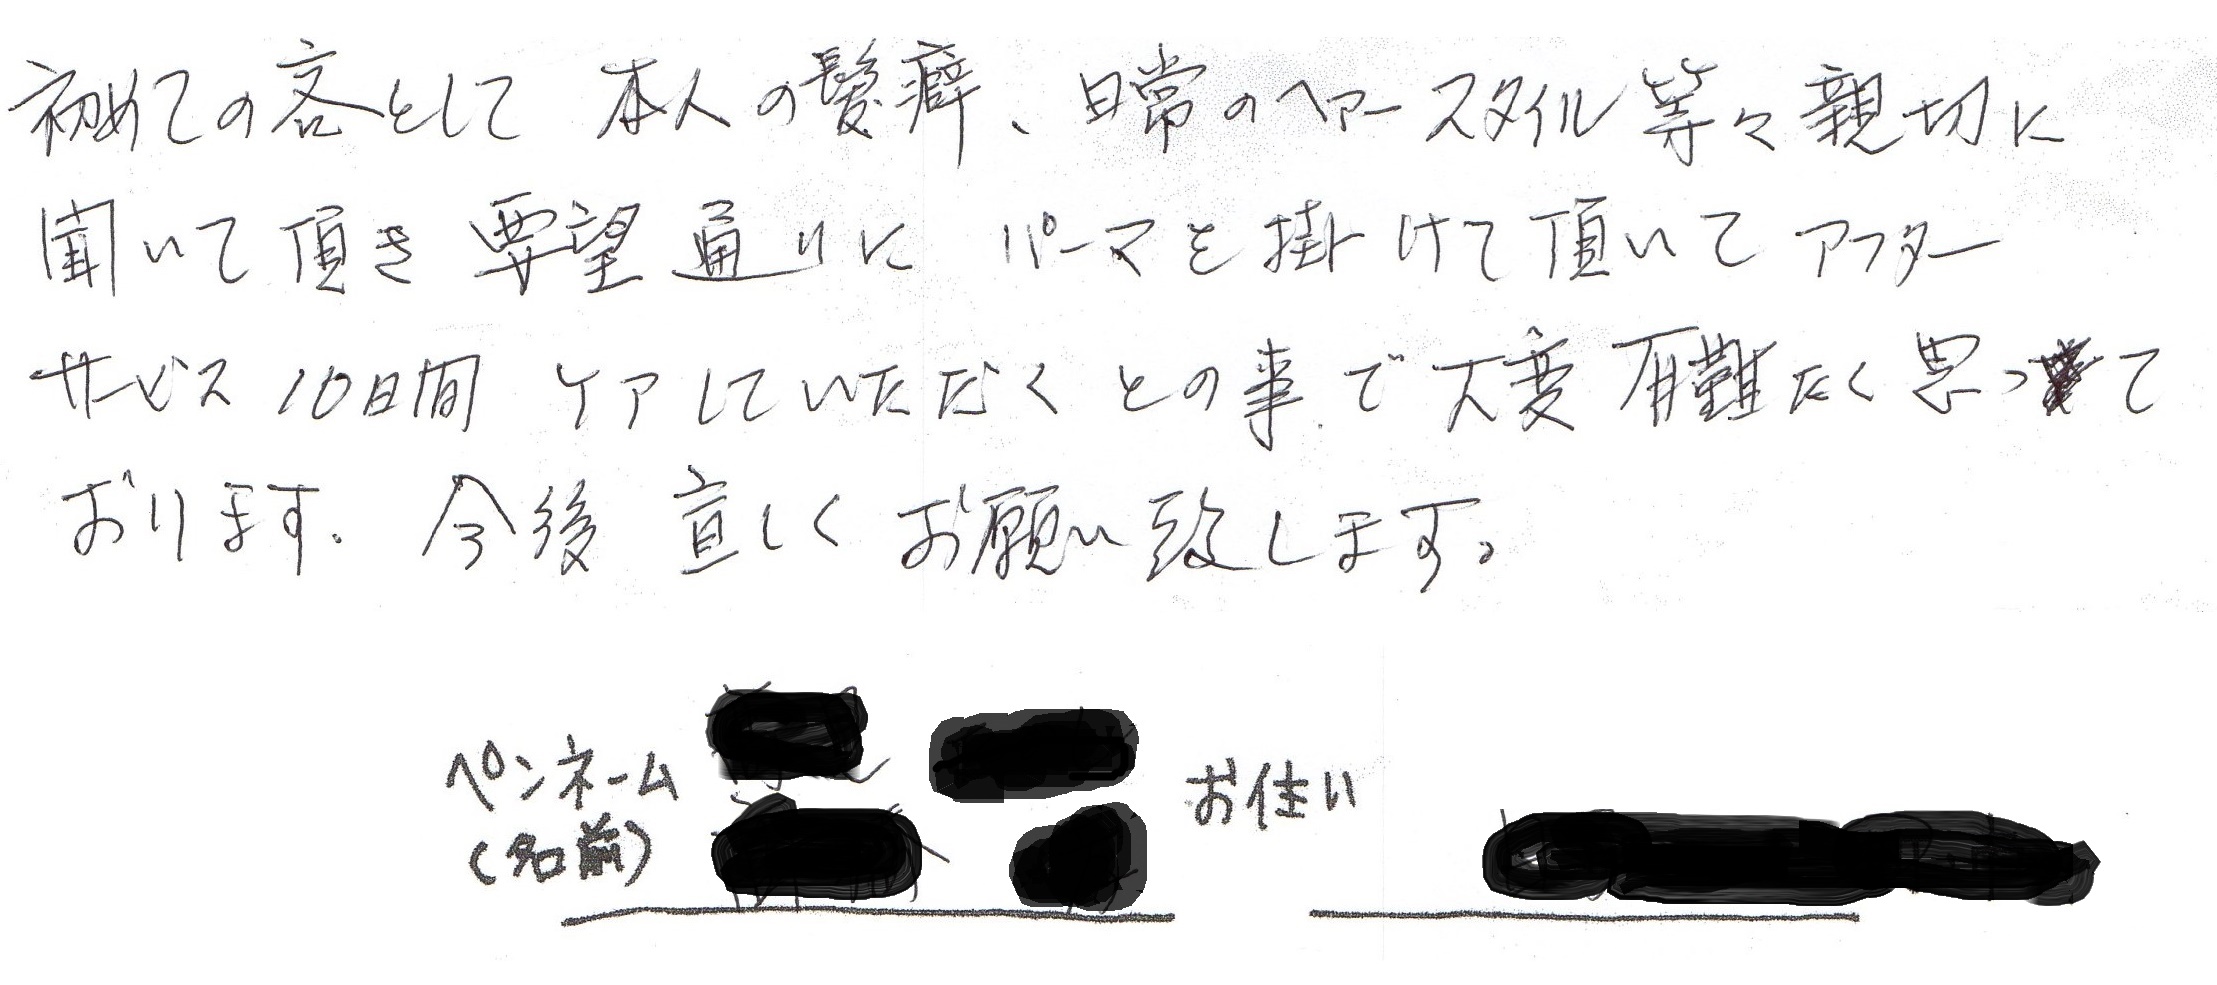 初めての客として 本人の髪癖、日常のヘアースタイル等々親切に
聞いて頂き要望通りに パーマを掛けて頂いてアフター
サービス10日間 ケアしていただくとの事で大変有難たく思って
おります。今後宜しくお願い致します。
ペンネーム
(名前)
お住い